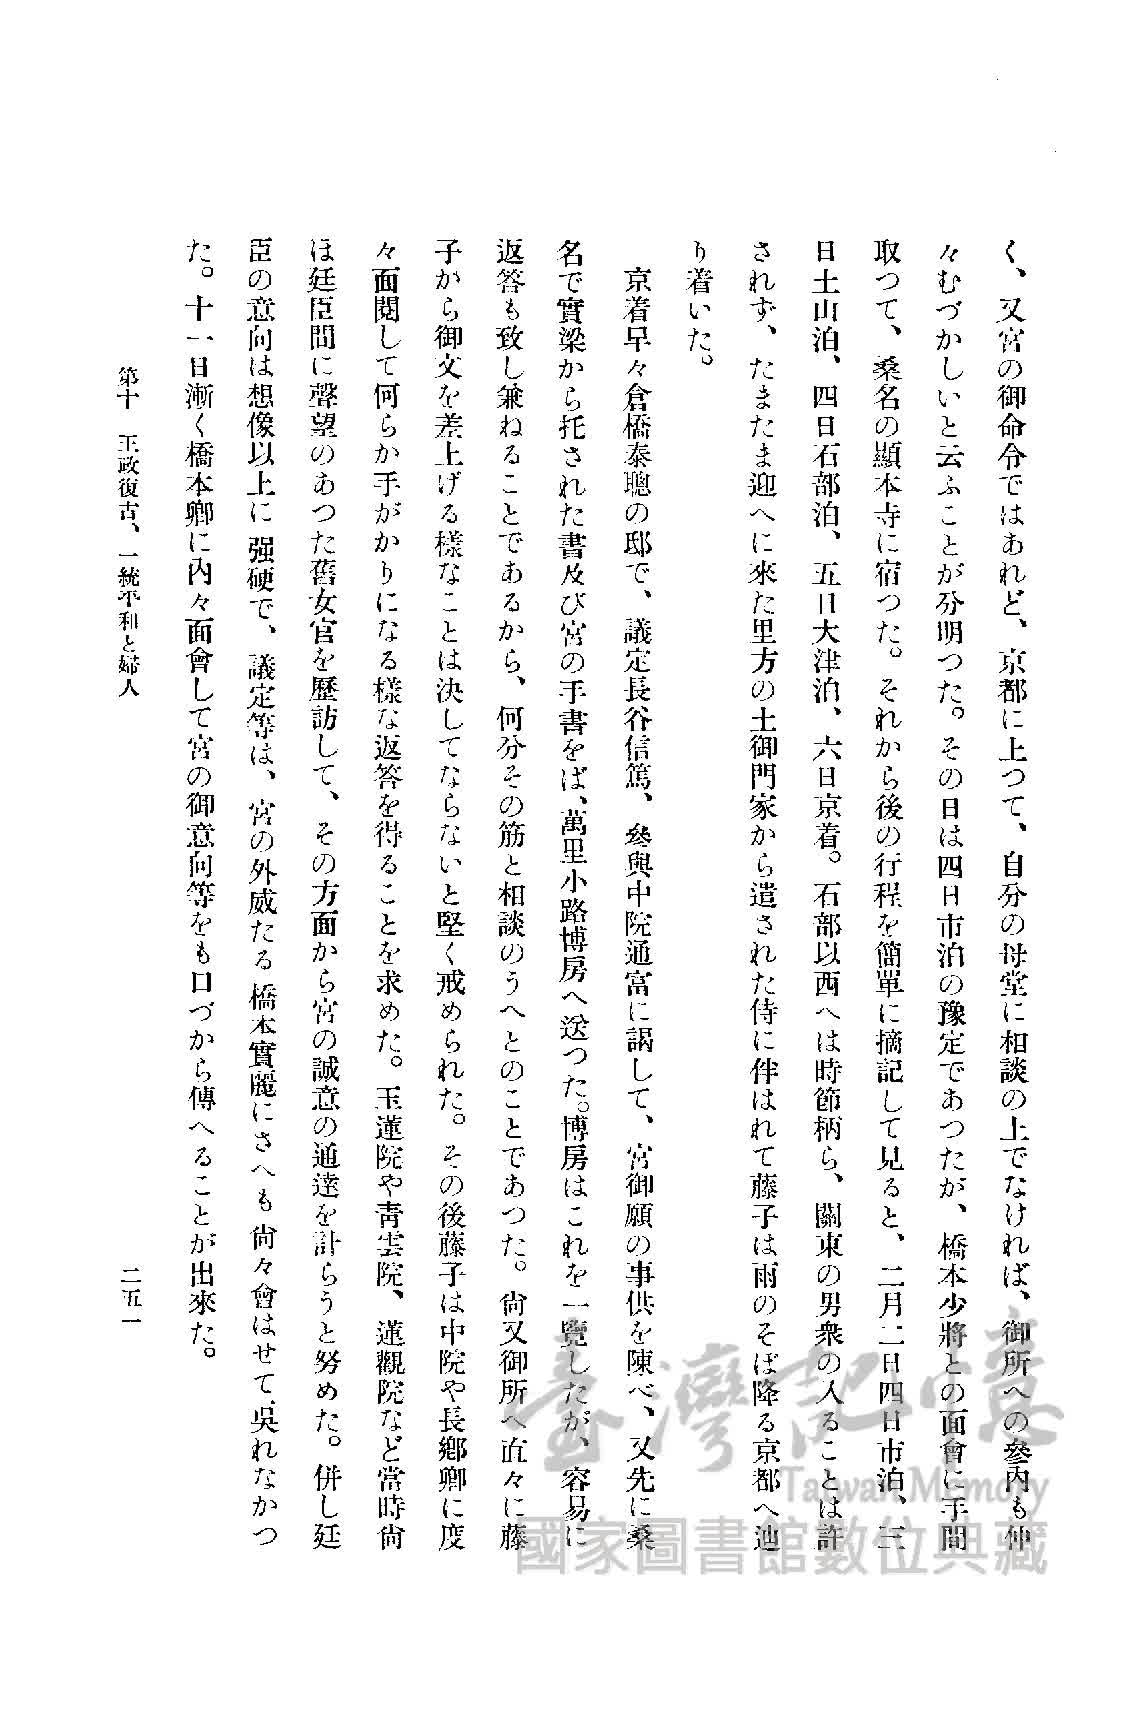 く、又宮の御命令ではあれど、京都に上つて、自分の母堂に相談の上でなければ、御所への參内も仲
々むづかしいと云ふことが分明つた。その日は四日市泊の豫定であつたが、橋本少將との面會に手間
取つて、桑名の顯本寺に宿つた。それから後の行程を簡單に摘記して見ると、二月二日四日市泊、三
日土山泊、四日石部泊、五日大津泊、六日京着。石部以西へは時節柄ら、關東の男衆の入ることは許
されず、たまたま迎へに來た里方の土御門家から遣された侍に伴はれて藤子は雨のそぼ降る京都へ辿
り着いた。
京着早々倉橋泰聰の邸で、議定長谷信篤、參與中院通富に謁して、宮御願の事供を陳べ、又先に桑
名で實梁から托された書及び宮の手書をば、萬里小路博房へ送つた。博房はこれを一覽したが、容易に
返答も致し兼ねることであるから、何分その筋と相談のうへとのことであつた。尙又御所へ直々に藤
子から御文を差上げる樣なことは決してならないと堅く戒められた。その後藤子は中院や長鄕卿に度
々面閲して何らか手がかりになる樣な返答を得ることを求めた。玉蓮院や靑雲院、蓮觀院など當時尙
ほ廷臣間に聲望のあつた舊女官を歷訪して、その方面から宮の誠意の通達を計らうと努めた。併し廷
臣の意向は想像以上に强硬で、議定等は、宮の外威たる橋本實麗にさへも尙々會はせて吳れなかつ
た。十一日漸く橋本卿に内々面會して宮の御意向等をも口づから傳へることが出來た。
第十 王政復古、一統平和と婦人
二五一
臺灣記憶
Taiwan Memory
國家圖書館數位典藏